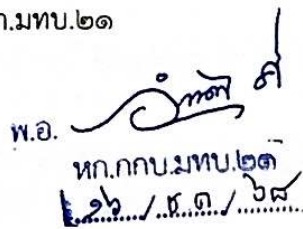 .มทบ.๒๑
พ.อ.
หก.กกบ.มทบ.๒๑
๒๖ / ธ.ค. / ๖๘